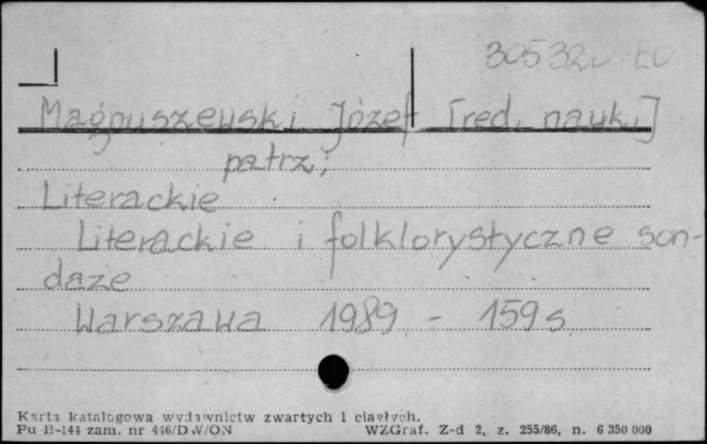 305320 EO
Magnuszewski Józef [red. nauk.]
patrz:
Literackie
Literackie i folklorystyczne son-
daże
Warszawa 1989 - 159 s
Karta katalogowa wydawnictw zwartych i ciągłych.
Pu B-144 zam. nr 446/DW/ON WZGraf. Z-d 2, z. 255/86, n. 6 350 000